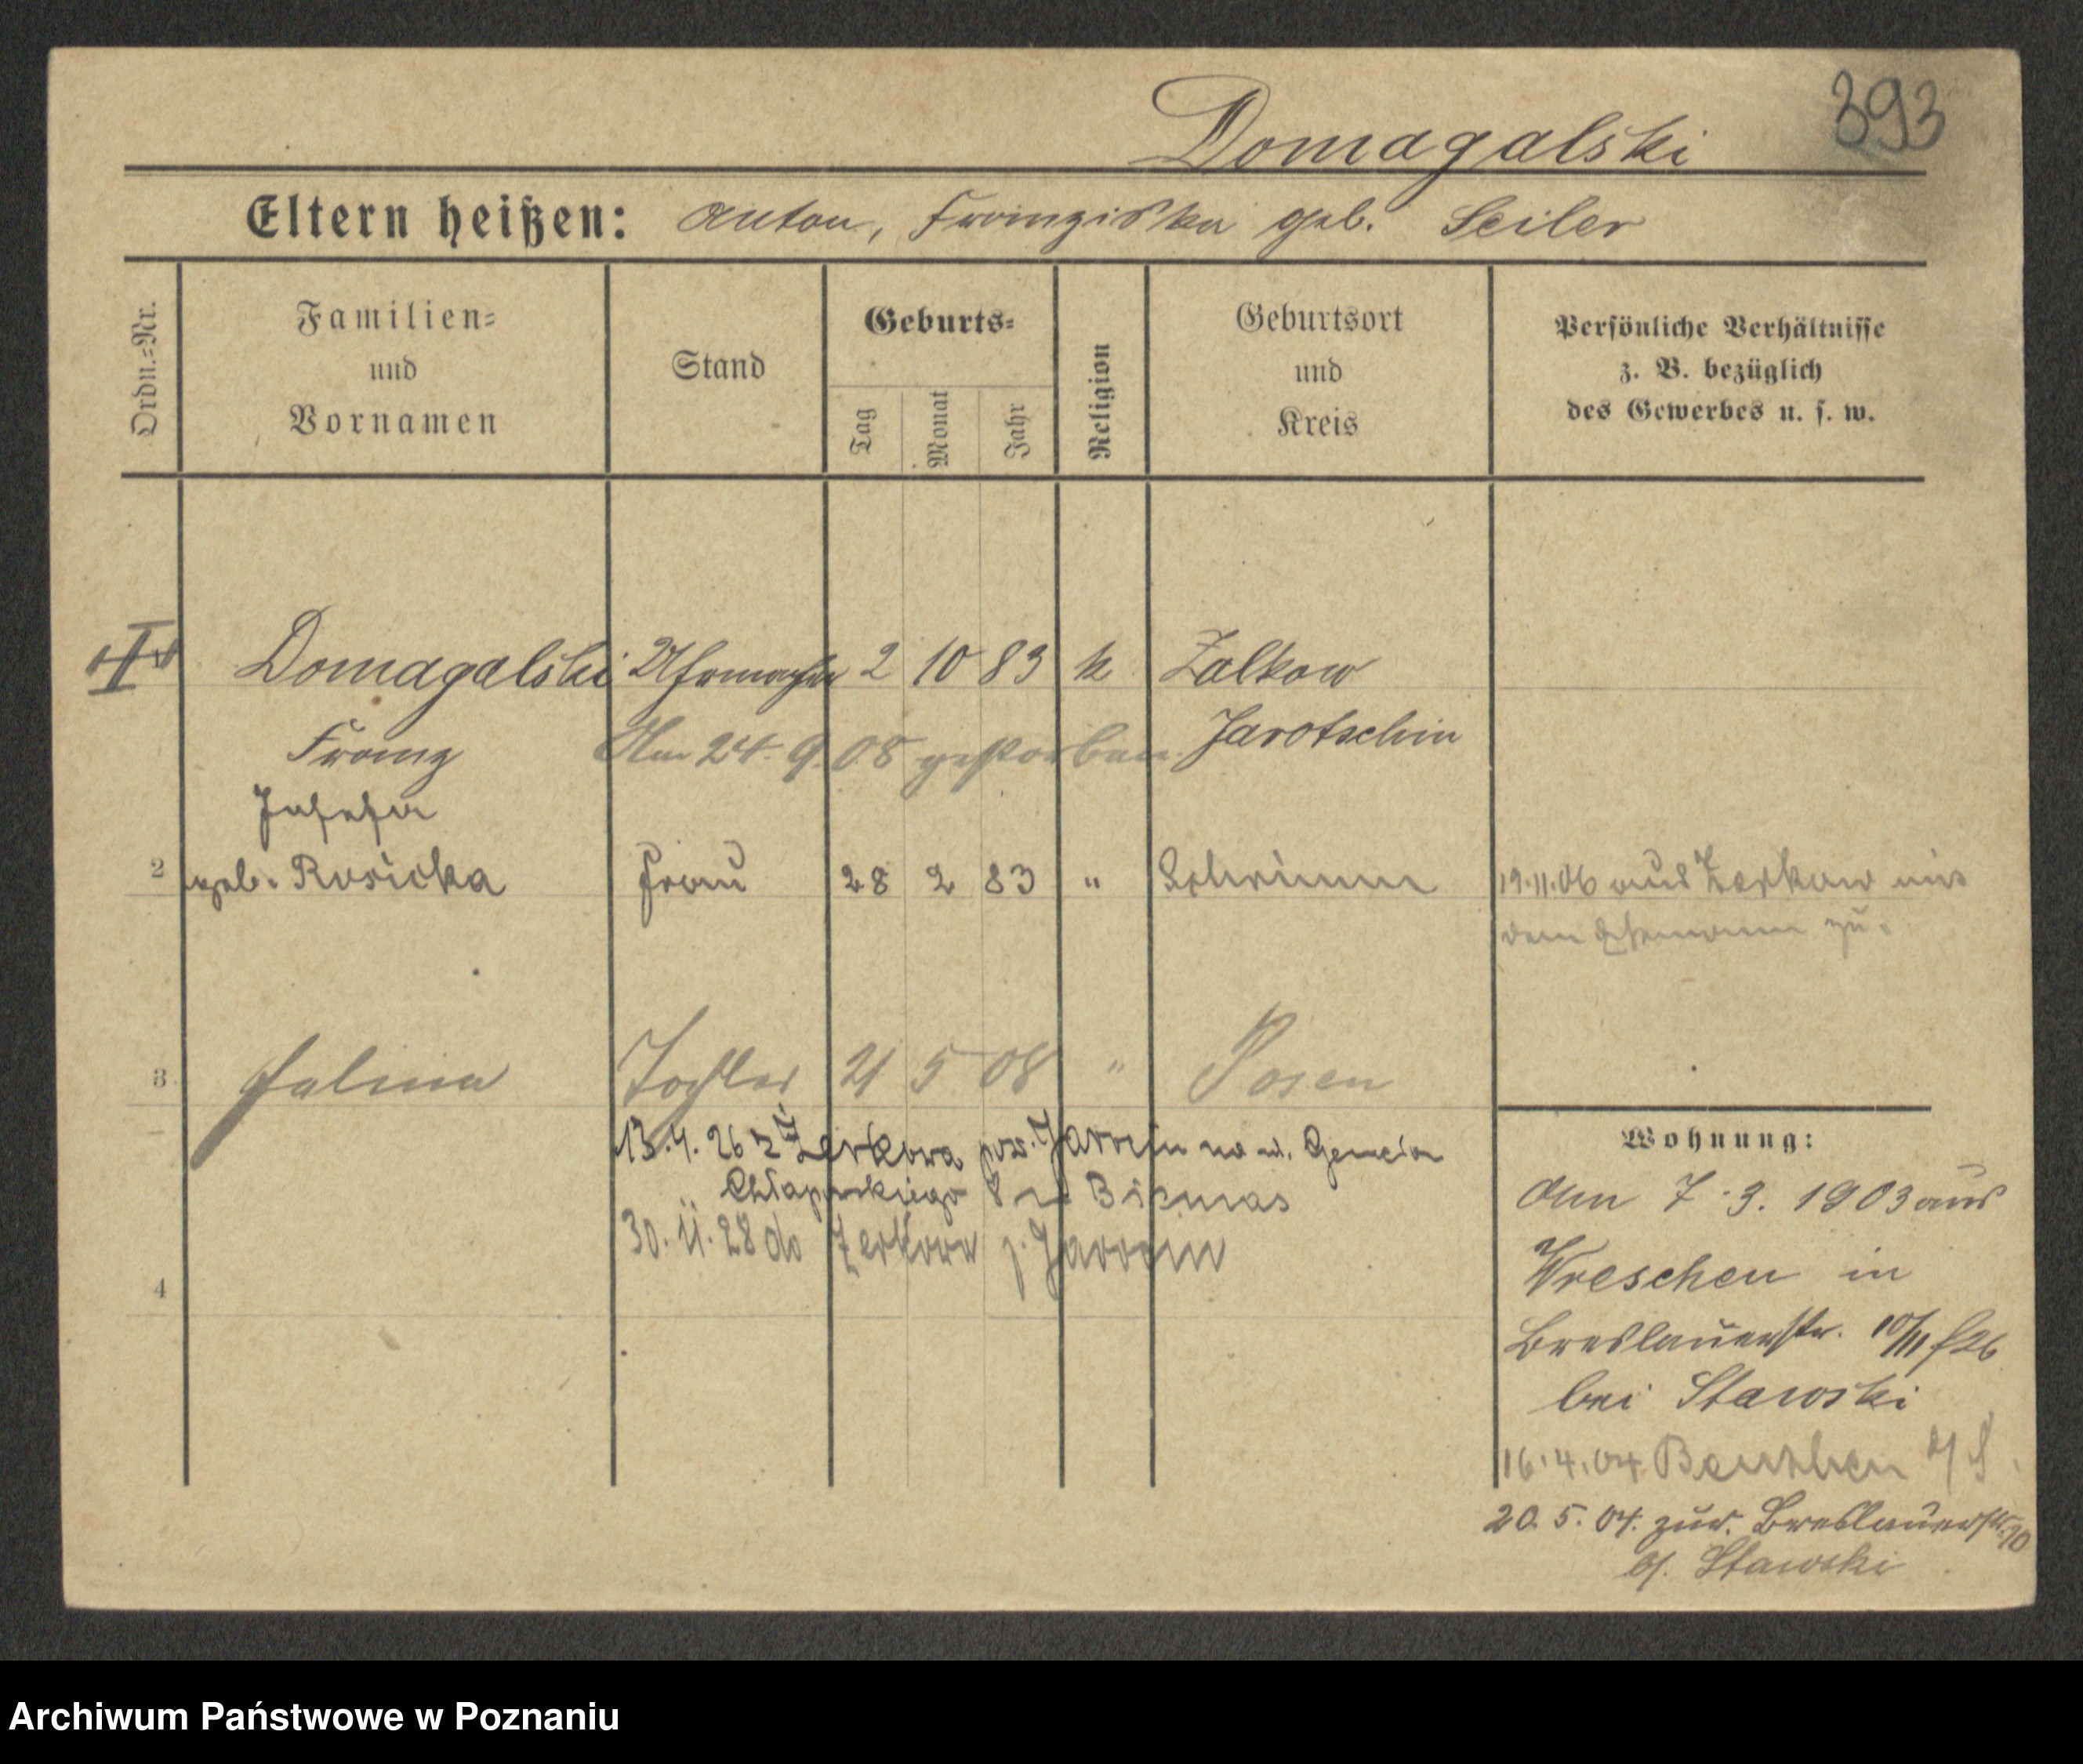 393
Domagalski
Eltern heißen: Anton, Franziska geb. Seiler
Ordn.=Nr.
Familien=
und
Vornamen
Stand
Geburts=
Tag
Monat
Jahr
Religion
Geburtsort
und
Kreis
Persönliche Verhältnisse
z. B. bezüglich
des Gewerbes u. s. w.
Domagalski Uhrmacher 2 10 83 k Zalkow
Franz Am 24. 9. 08 gestorben Jarotschin
Josefa
2 geb. Rosicka Frau 28 2 83 " Schrimm 19.11.06 aus Zerkow mit
dem Ehemann zu.
3 Halina Tochter 21 5 08 " Posen
13.4.26 z Żerkowa pow. Jarocin
Chłapowskiego 8
30.11.28 do Żerkowa p. Jarocin
4
Wohnung:
Am 7.3.1903 aus
Wreschen in
Breslauerstr. 10/III
bei Stawski
16.4.04 Beuthen O/S.
20.5.04. zur. Breslauerstr. 10
b/. Stawski
Archiwum Państwowe w Poznaniu